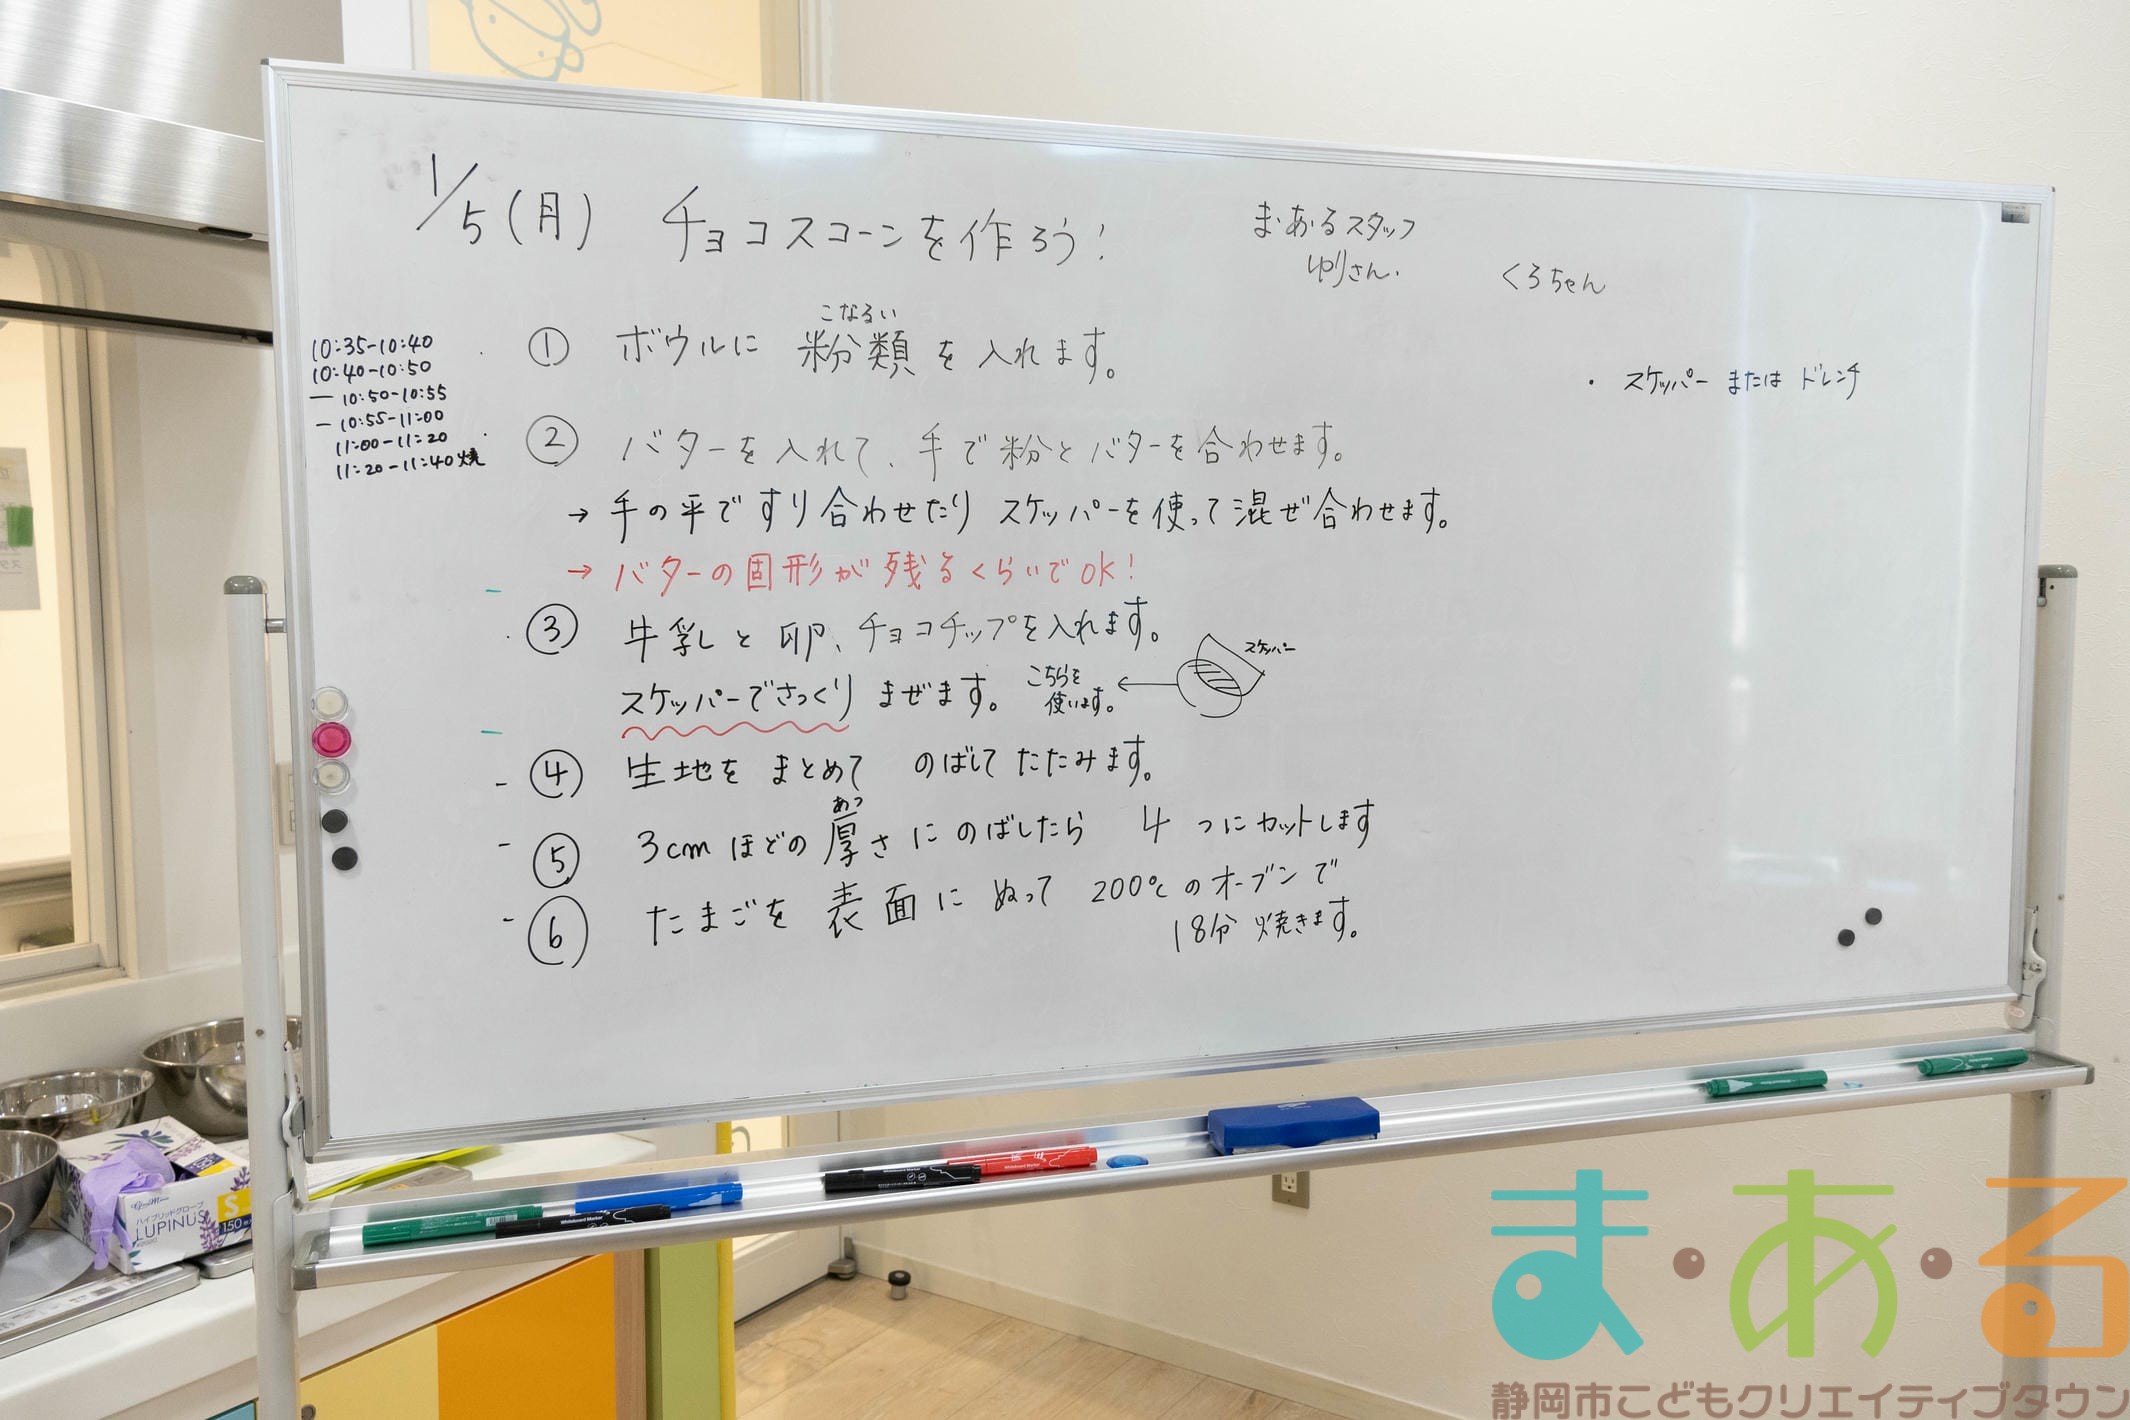 1/5(月) チョコスコーンを作ろう!
ま・あ・るスタッフ
ゆりさん. くろちゃん
10:35-10:40
10:40-10:50
10:50-10:55
10:55-11:00
11:00-11:20
11:20-11:40 焼
こなるい
① ボウルに 粉類 を 入れます。
・スケッパー または ドレンチ
② バターを入れて、手で粉とバターを合わせます。
→ 手の平ですり合わせたり スケッパーを使って混ぜ合わせます。
→ バターの固形が残るくらいでOK!
③ 牛乳と卵、チョコチップを入れます。
スケッパーでさっくり まぜます。
こちらを
使います。
←
スケッパー
④ 生地を まとめて のばして たたみます。
あつ
⑤ 3cmほどの厚さにのばしたら 4つにカットします
⑥ たまごを 表面に ぬって 200℃のオーブンで
18分 焼きます。
ハイブリッドグローブ
LUPINUS
S
150
Whiteboard Marker
ま・あ・る
静岡市こどもクリエイティブタウン